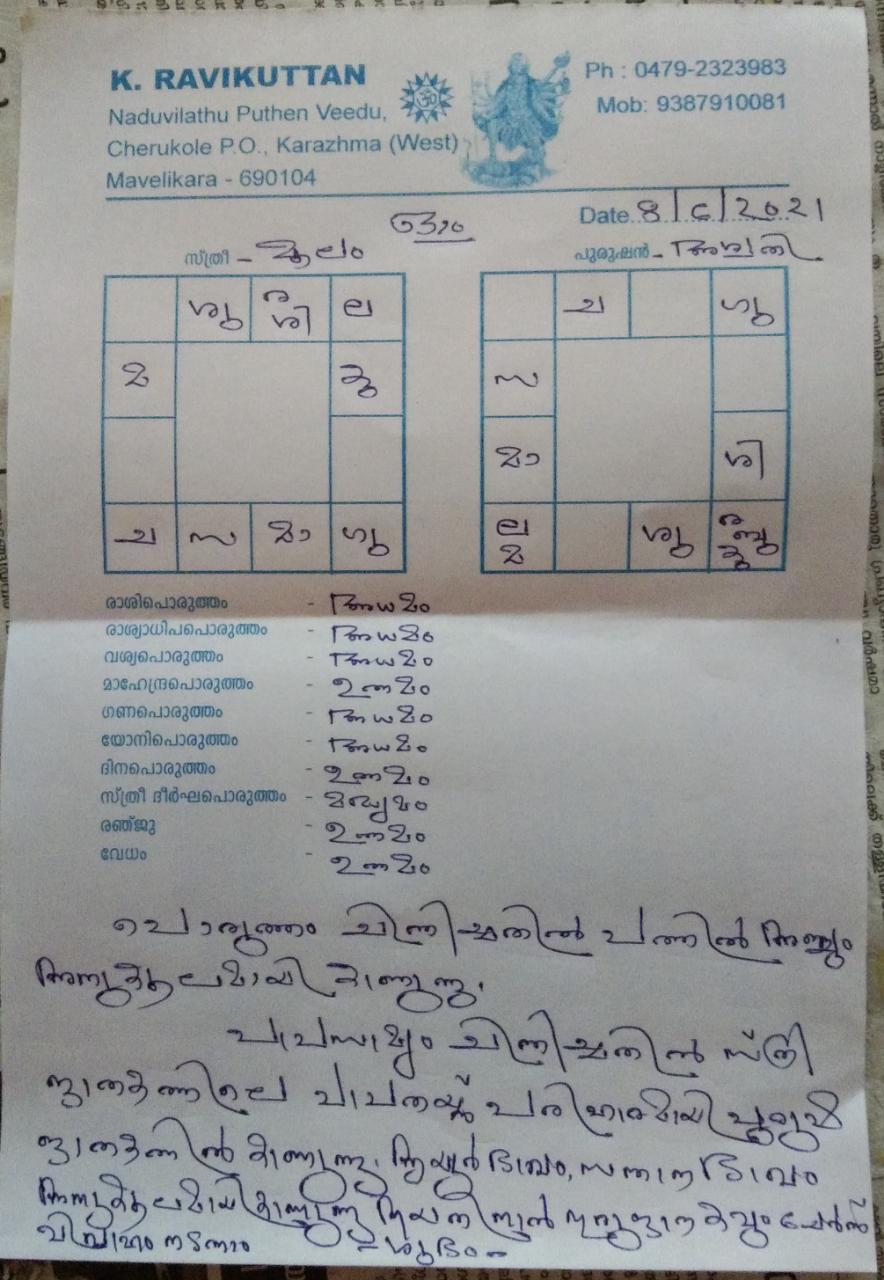 K. RAVIKUTTAN
Naduvilathu Puthen Veedu,
Cherukole P.O., Karazhma (West)
Mavelikara - 690104
ॐ
Ph : 0479-2323983
Mob: 9387910081
Date. 8/6/2021
ഓം
സ്ത്രീ - മൂലം
ശു ര ല
ശി
മ കു
ച സ മാ ഗു
പുരുഷൻ - അശ്വതി
ച ഗു
സ
മാ ശി
ല ശു ര ബു
മ കു
രാശിപൊരുത്തം - അധമം
രാശ്യാധിപപൊരുത്തം - അധമം
വശ്യപൊരുത്തം - അധമം
മാഹേന്ദ്രപൊരുത്തം - ഉത്തമം
ഗണപൊരുത്തം - അധമം
യോനിപൊരുത്തം - അധമം
ദിനപൊരുത്തം - ഉത്തമം
സ്ത്രീ ദീർഘപൊരുത്തം - മദ്ധ്യമം
രഞ്ജു - ഉത്തമം
വേധം - ഉത്തമം
പൊരുത്തം ചിന്തിച്ചതിൽ പത്തിൽ അഞ്ചും
അനുകൂലമായി കാണുന്നു.
പാപസാമ്യം ചിന്തിച്ചതിൽ സ്ത്രീ
ജാതകത്തിലെ പാപതയ്ക്ക് പരിഹാരമായി പുരുഷ
ജാതകത്തിൽ കാണുന്നു. ആയുർഭാവം, സന്താനഭാവം
അനുകൂലമായി കാണുന്നു ആയതിനാൽ ഇരുജാതകവും ചേർത്ത്
വിവാഹം നടത്താം = ശുഭം -